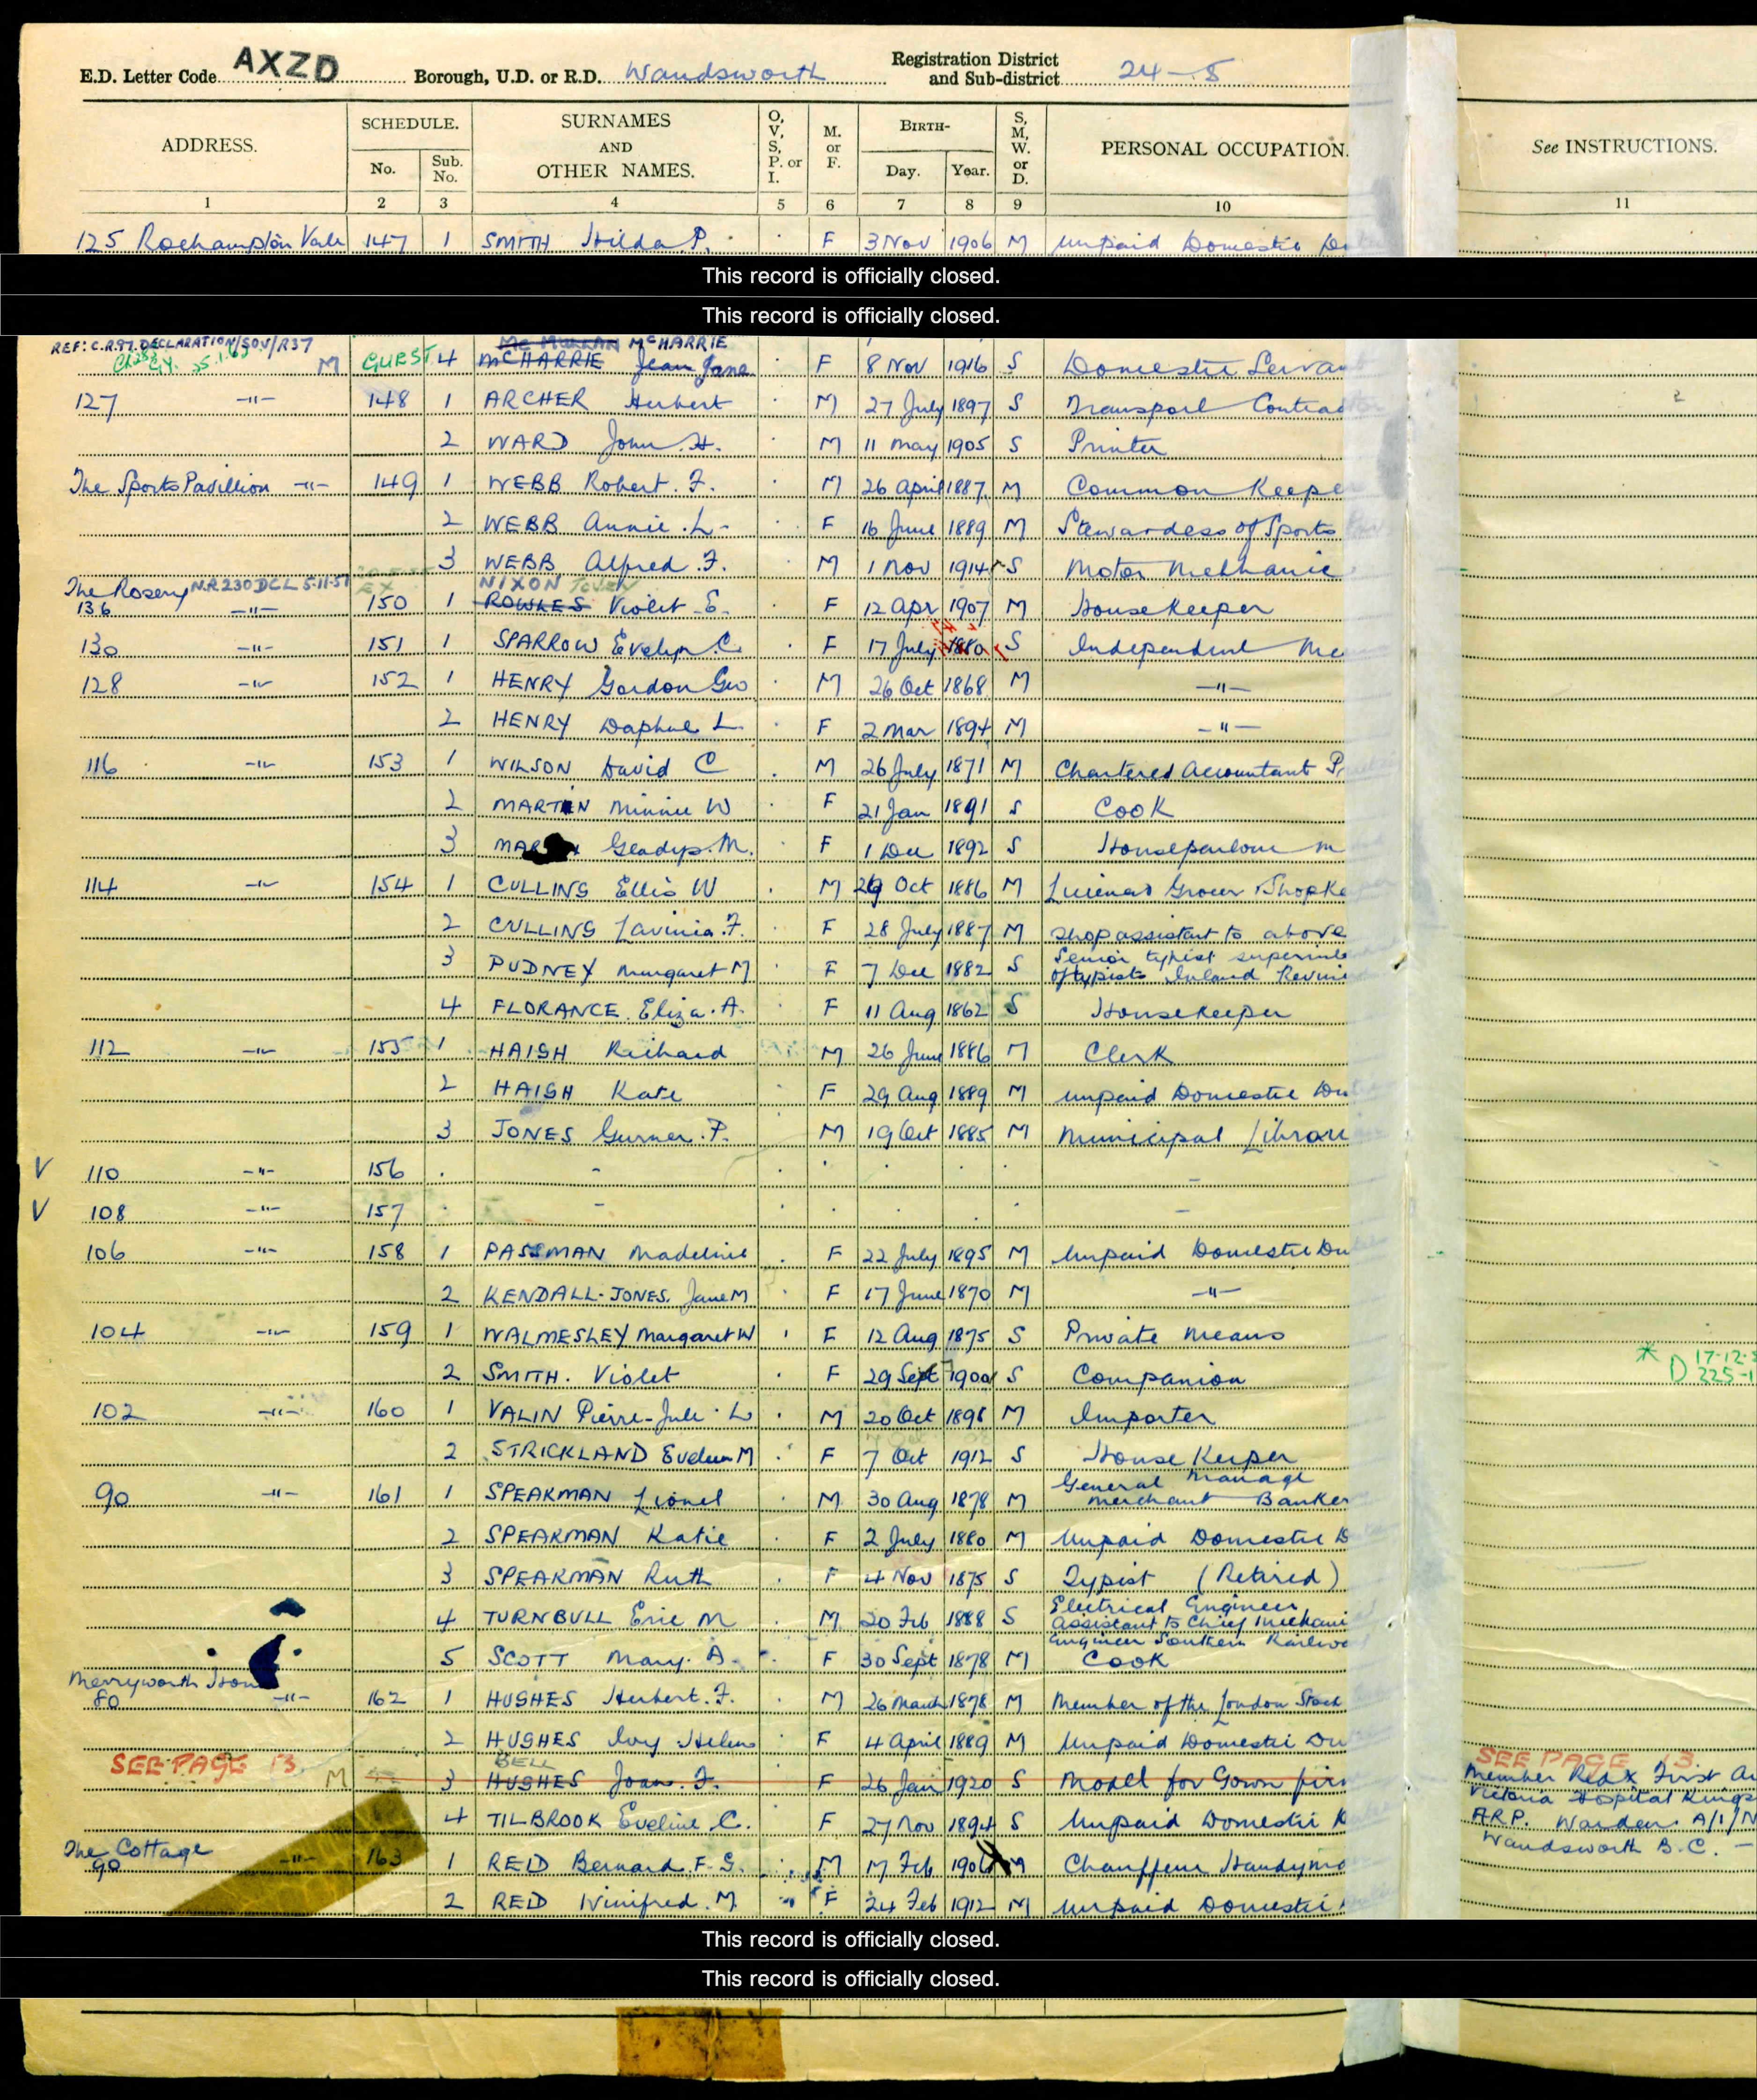 E.D. Letter Code AXZD Borough, U.D. or R.D. Wandsworth Registration District and Sub-district 24-5
ADDRESS. SCHEDULE. No. Sub. No. SURNAMES AND OTHER NAMES. O, V, S, P. or I. M. or F. BIRTH- Day. Year. S, M, W. or D. PERSONAL OCCUPATION. See INSTRUCTIONS.
1 2 3 4 5 6 7 8 9 10 11
125 Roehampton Vale 147 1 SMITH Hilda P. F 3 Nov 1906 M Unpaid Domestic Du
This record is officially closed.
This record is officially closed.
REF: C.R.97. DECLARATION/SOV/R37 McHARRIE
M GUEST 4 McHARRIE Jean Jane F 8 Nov 1916 S Domestic Servant
127 -"- 148 1 ARCHER Herbert M 27 July 1897 S Transport Contractor
2 WARD John H. M 11 May 1905 S Printer
The Sports Pavillion -"- 149 1 WEBB Robert F. M 26 April 1887 M Common Keeper
2 WEBB Annie L. F 16 June 1889 M Stewardess of Sports Pav
3 WEBB Alfred F. M 1 Nov 1914 S Motor Mechanic
The Rosery N.R 230 DCL 5.11.51 NIXON
136 -"- 150 1 ROWLES Violet E. F 12 Apr 1907 M Housekeeper
130 -"- 151 1 SPARROW Evelyn C. F 17 July 1880 S Independent Me
128 -"- 152 1 HENRY Gordon Geo M 26 Oct 1868 M -"-
2 HENRY Daphne L. F 2 Mar 1894 M -"-
116 -"- 153 1 WILSON David C M 26 July 1871 M Chartered Accountant Pr
2 MARTIN Minnie W F 21 Jan 1891 S Cook
3 Gladys M. F 1 Dec 1892 S Houseparlour m
114 -"- 154 1 CULLING Ellis W M 29 Oct 1886 M Licensed Grocer Shopkeeper
2 CULLING Lavinia F. F 28 July 1887 M Shop assistant to above
3 PUDNEY Margaret M F 7 Dec 1882 S Senior typist superint
of typists Inland Revenue
4 FLORANCE Eliza A. F 11 Aug 1862 S Housekeeper
112 -"- 155 1 HAISH Richard M 26 June 1886 M Clerk
2 HAISH Kate F 29 Aug 1889 M Unpaid Domestic Duties
3 JONES Gurner P. M 19 Oct 1885 M Municipal Librari
V 110 -"- 156 - -
V 108 -"- 157 - -
106 -"- 158 1 PASSMAN Madeline F 22 July 1895 M Unpaid Domestic Duties
2 KENDALL-JONES Jane M F 17 June 1870 M -"-
104 -"- 159 1 WALMESLEY Margaret W F 12 Aug 1875 S Private Means
* 17-12-
2 SMITH Violet F 29 Sept 1900 S Companion D 225-1
102 -"- 160 1 VALIN Pierre-Jule L M 20 Oct 1898 M Importer
2 STRICKLAND Eveleen M F 7 Oct 1912 S House Keeper
General Manage
90 -"- 161 1 SPEAKMAN Lionel M 30 Aug 1878 M Merchant Banker
2 SPEAKMAN Katie F 2 July 1880 M Unpaid Domestic D
3 SPEAKMAN Ruth F 4 Nov 1875 S Typist (Retired)
Electrical Engineer
4 TURNBULL Eric M M 20 Feb 1888 S Assistant to Chief Mechani
Engineer Southern Railway
5 SCOTT Mary A. F 30 Sept 1878 M Cook
Merryworth Hou
80 -"- 162 1 HUGHES Herbert F. M 26 March 1878 M Member of the London Stock
2 HUGHES Ivy Helena F 4 April 1889 M Unpaid Domestic Du
SEE PAGE 13. BELL SEE PAGE 13.
M 3 HUGHES Joan F. F 26 Jan 1920 S Model for Gown firm Member Red X First A
Victoria Hospital Kings
4 TILBROOK Eveline C. F 27 Nov 1894 S Unpaid Domestic D A.R.P. Warden A/1/N
The Cottage Wandsworth B.C. -
90 -"- 163 1 REID Bernard F. G. M 17 Feb 1906 M Chauffeur Handyma
2 REID Winifred M. F 24 Feb 1912 M Unpaid Domestic
This record is officially closed.
This record is officially closed.